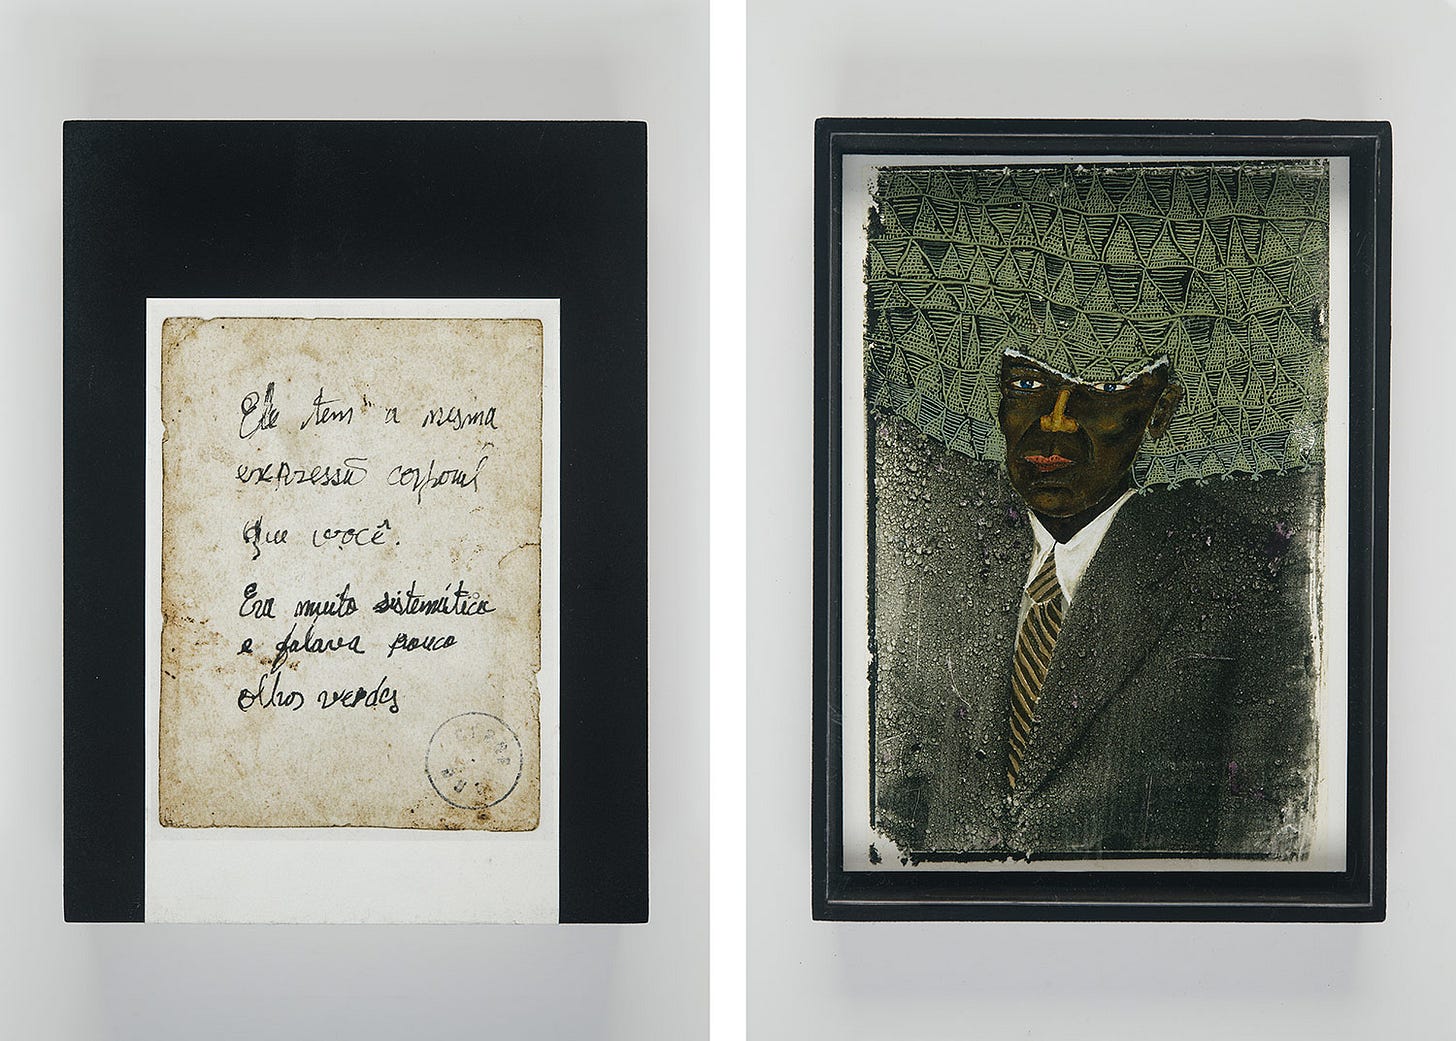 Ele tem a mesma
expressão corporal
que você.
Era muito sistemático
e falava pouco
olhos verdes